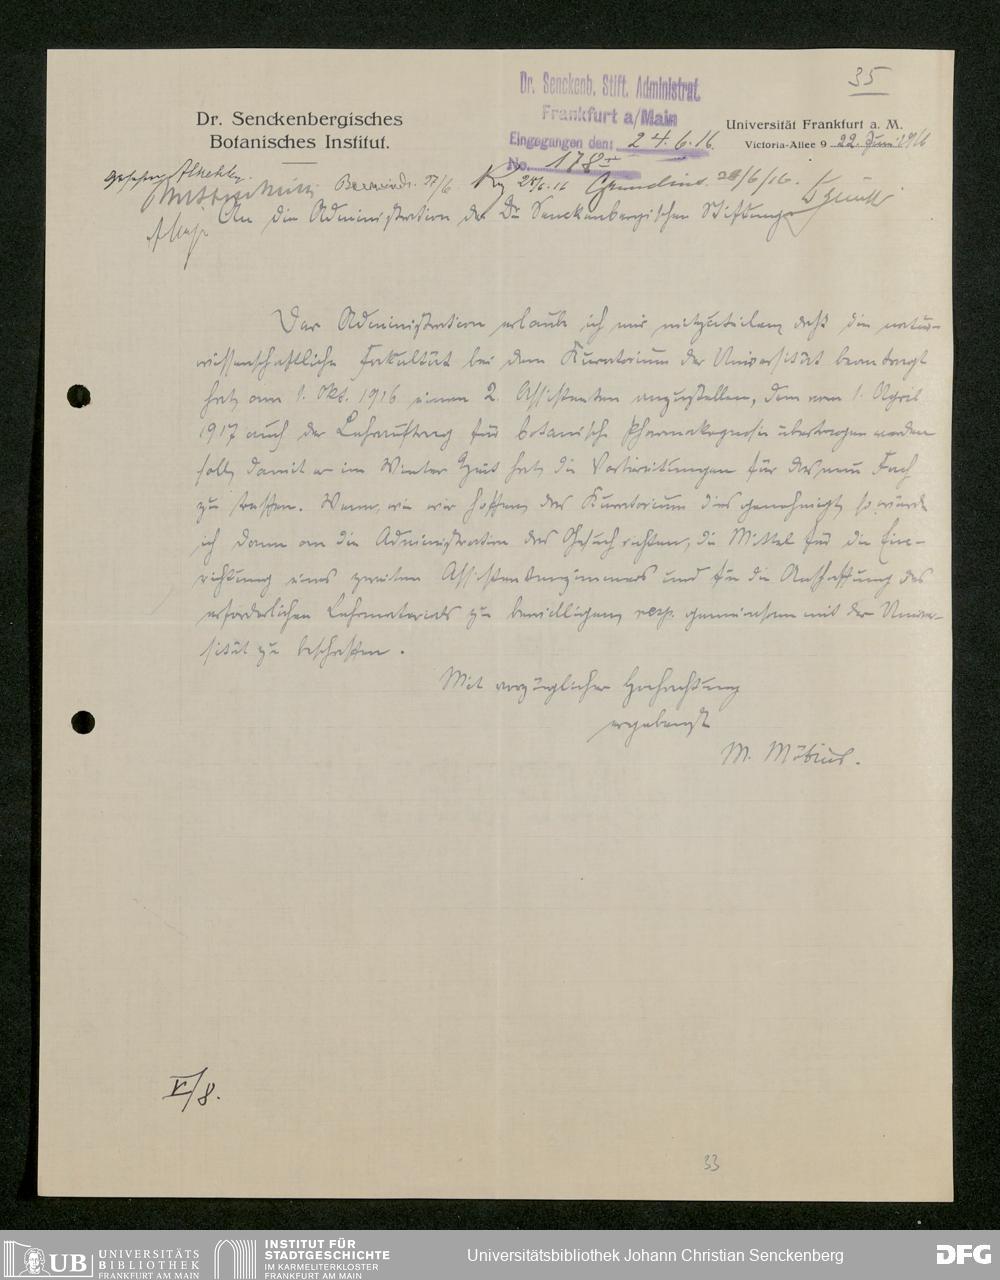 35
Dr. Senckenb. Stift. Administrat.
Frankfurt a/Main
Eingegangen den: 24.6.16.
No. 178
Dr. Senckenbergisches
Botanisches Institut.
Universität Frankfurt a. M.
Victoria-Allee 9 22. Juni 1916
gesehen 27/6 24/6.16 28/6/16.
An die Administration der Dr. Senckenbergischen Stiftung
Der Administration erlaube ich mir mitzuteilen, daß die natur-
wissenschaftliche Fakultät bei dem Kuratorium der Universität beantragt
hat, am 1. Okt. 1916 einen 2. Assistenten anzustellen, dem vom 1. April
1917 auch der Lehrauftrag für botanische Pharmakognosie übertragen werden
soll, damit er im Winter Zeit hat, die Vorbereitungen für das neue Fach
zu treffen. Wenn, wie wir hoffen, das Kuratorium dies genehmigt, so würde
ich dann an die Administration das Gesuch richten, die Mittel für die Ein-
richtung eines zweiten Assistentenzimmers und für die Anschaffung des
erforderlichen Lehrmaterials zu bewilligen, resp. gemeinsam mit der Univer-
sität zu beschaffen.
Mit vorzüglicher Hochachtung
ergebenst
M. Möbius.
V/8.
33
UB UNIVERSITÄTS
BIBLIOTHEK
FRANKFURT AM MAIN
INSTITUT FÜR
STADTGESCHICHTE
IM KARMELITERKLOSTER
FRANKFURT AM MAIN
Universitätsbibliothek Johann Christian Senckenberg
DFG